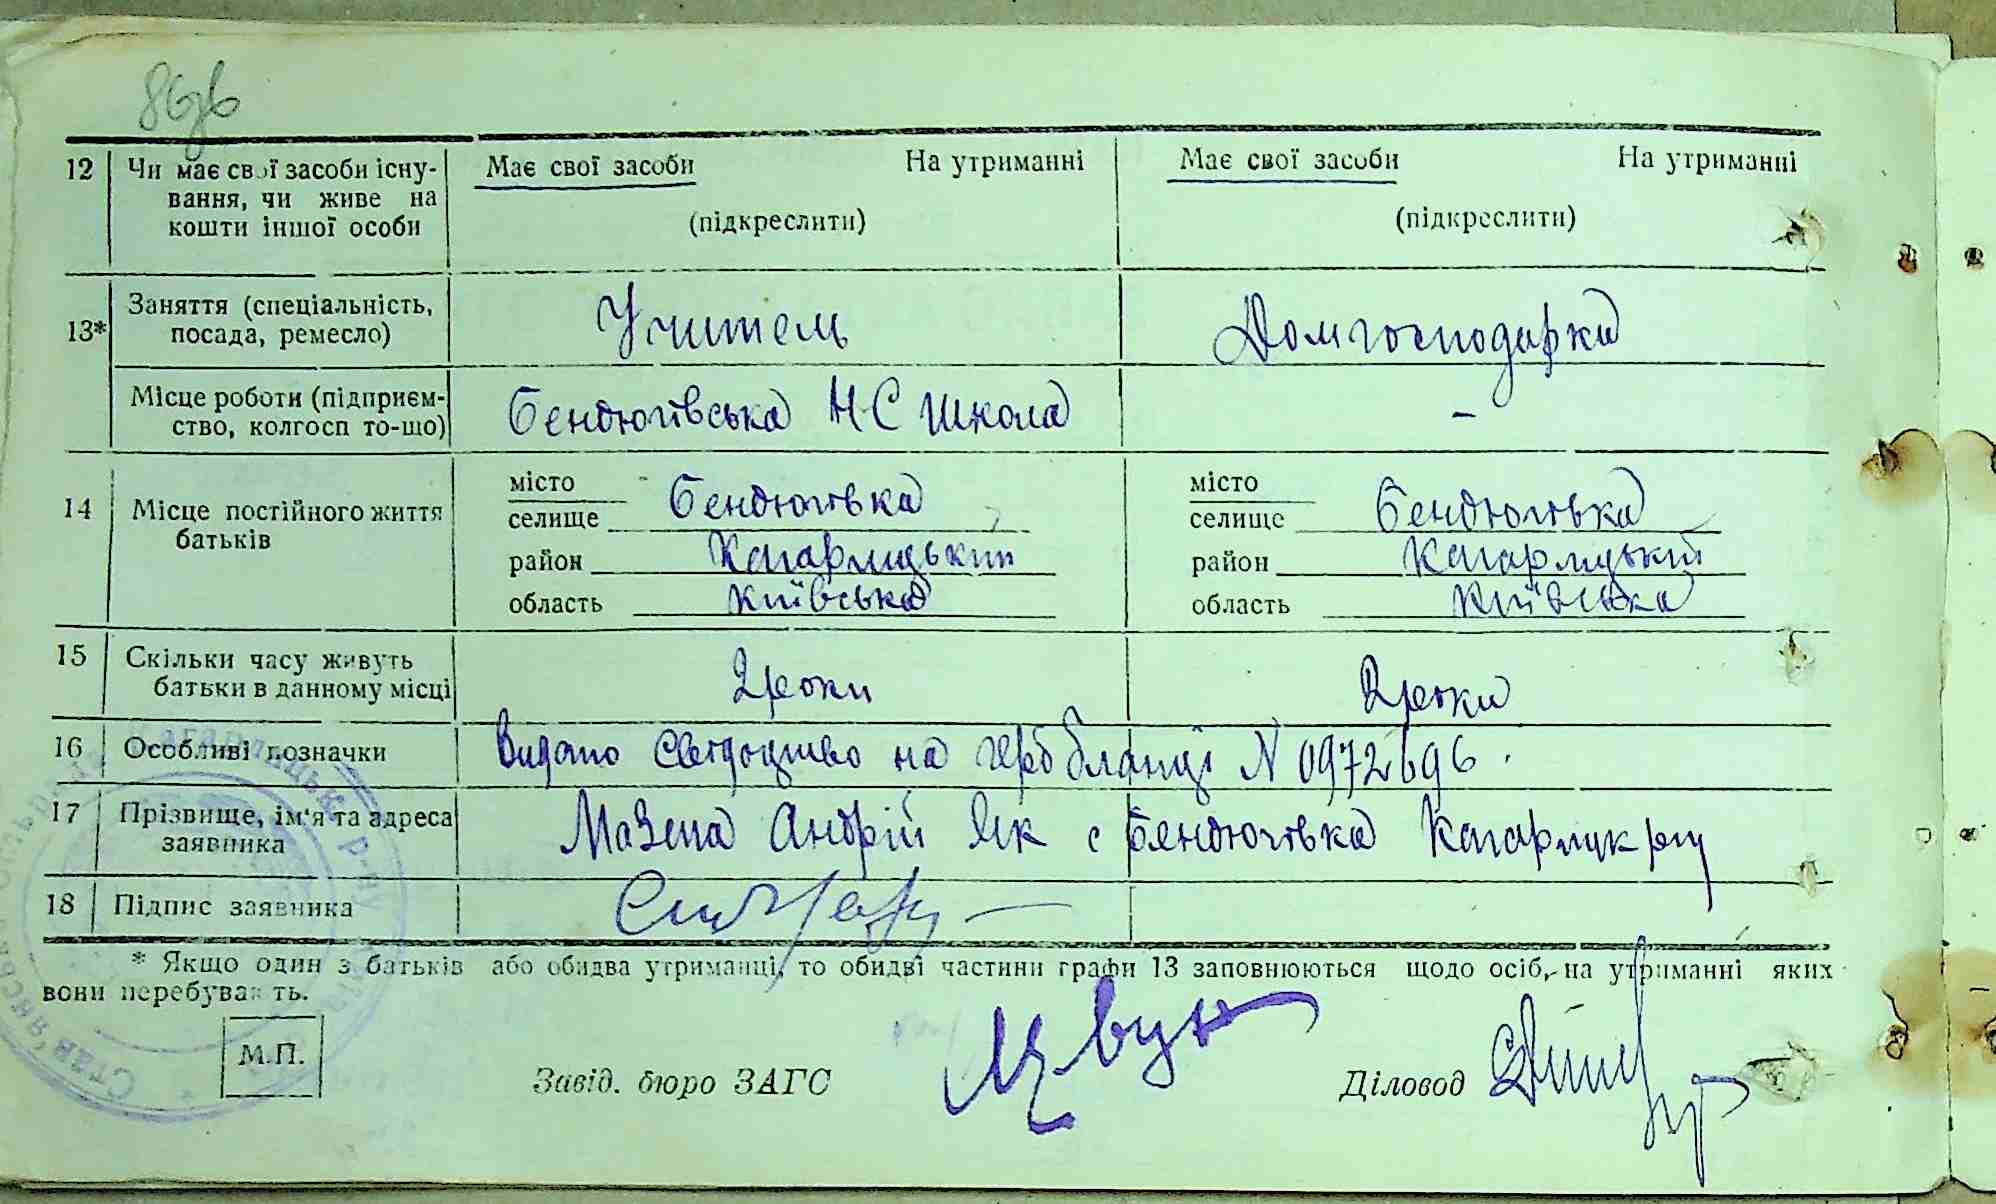 12 Чи має свої засоби існу- Має свої засоби На утриманні Має свої засоби На утриманні
вання, чи живе на
кошти іншої особи (підкреслити) (підкреслити)
13* Заняття (спеціальність, Учитель Домгосподарка
посада, ремесло)
Місце роботи (підприєм- Бендюгівська Н С Школа –
ство, колгосп то-що)
14 Місце постійного життя місто Бендюгівка місто Бендюгівка
батьків селище селище
район Кагарлицький район Кагарлицький
область Київська область Київська
15 Скільки часу живуть 2 роки 2 роки
батьки в данному місці
16 Особливі позначки Видано свідоцтво на герб бланці N 0972696.
17 Прізвище, ім'я та адреса Мазепа Андрій Як с Бендюгівка Кагарлик р-ну
заявника
18 Підпис заявника
* Якщо один з батьків або обидва утриманці, то обидві частини графи 13 заповнюються щодо осіб, на утриманні яких
вони перебувають.
М.П. Завід. бюро ЗАГС Діловод